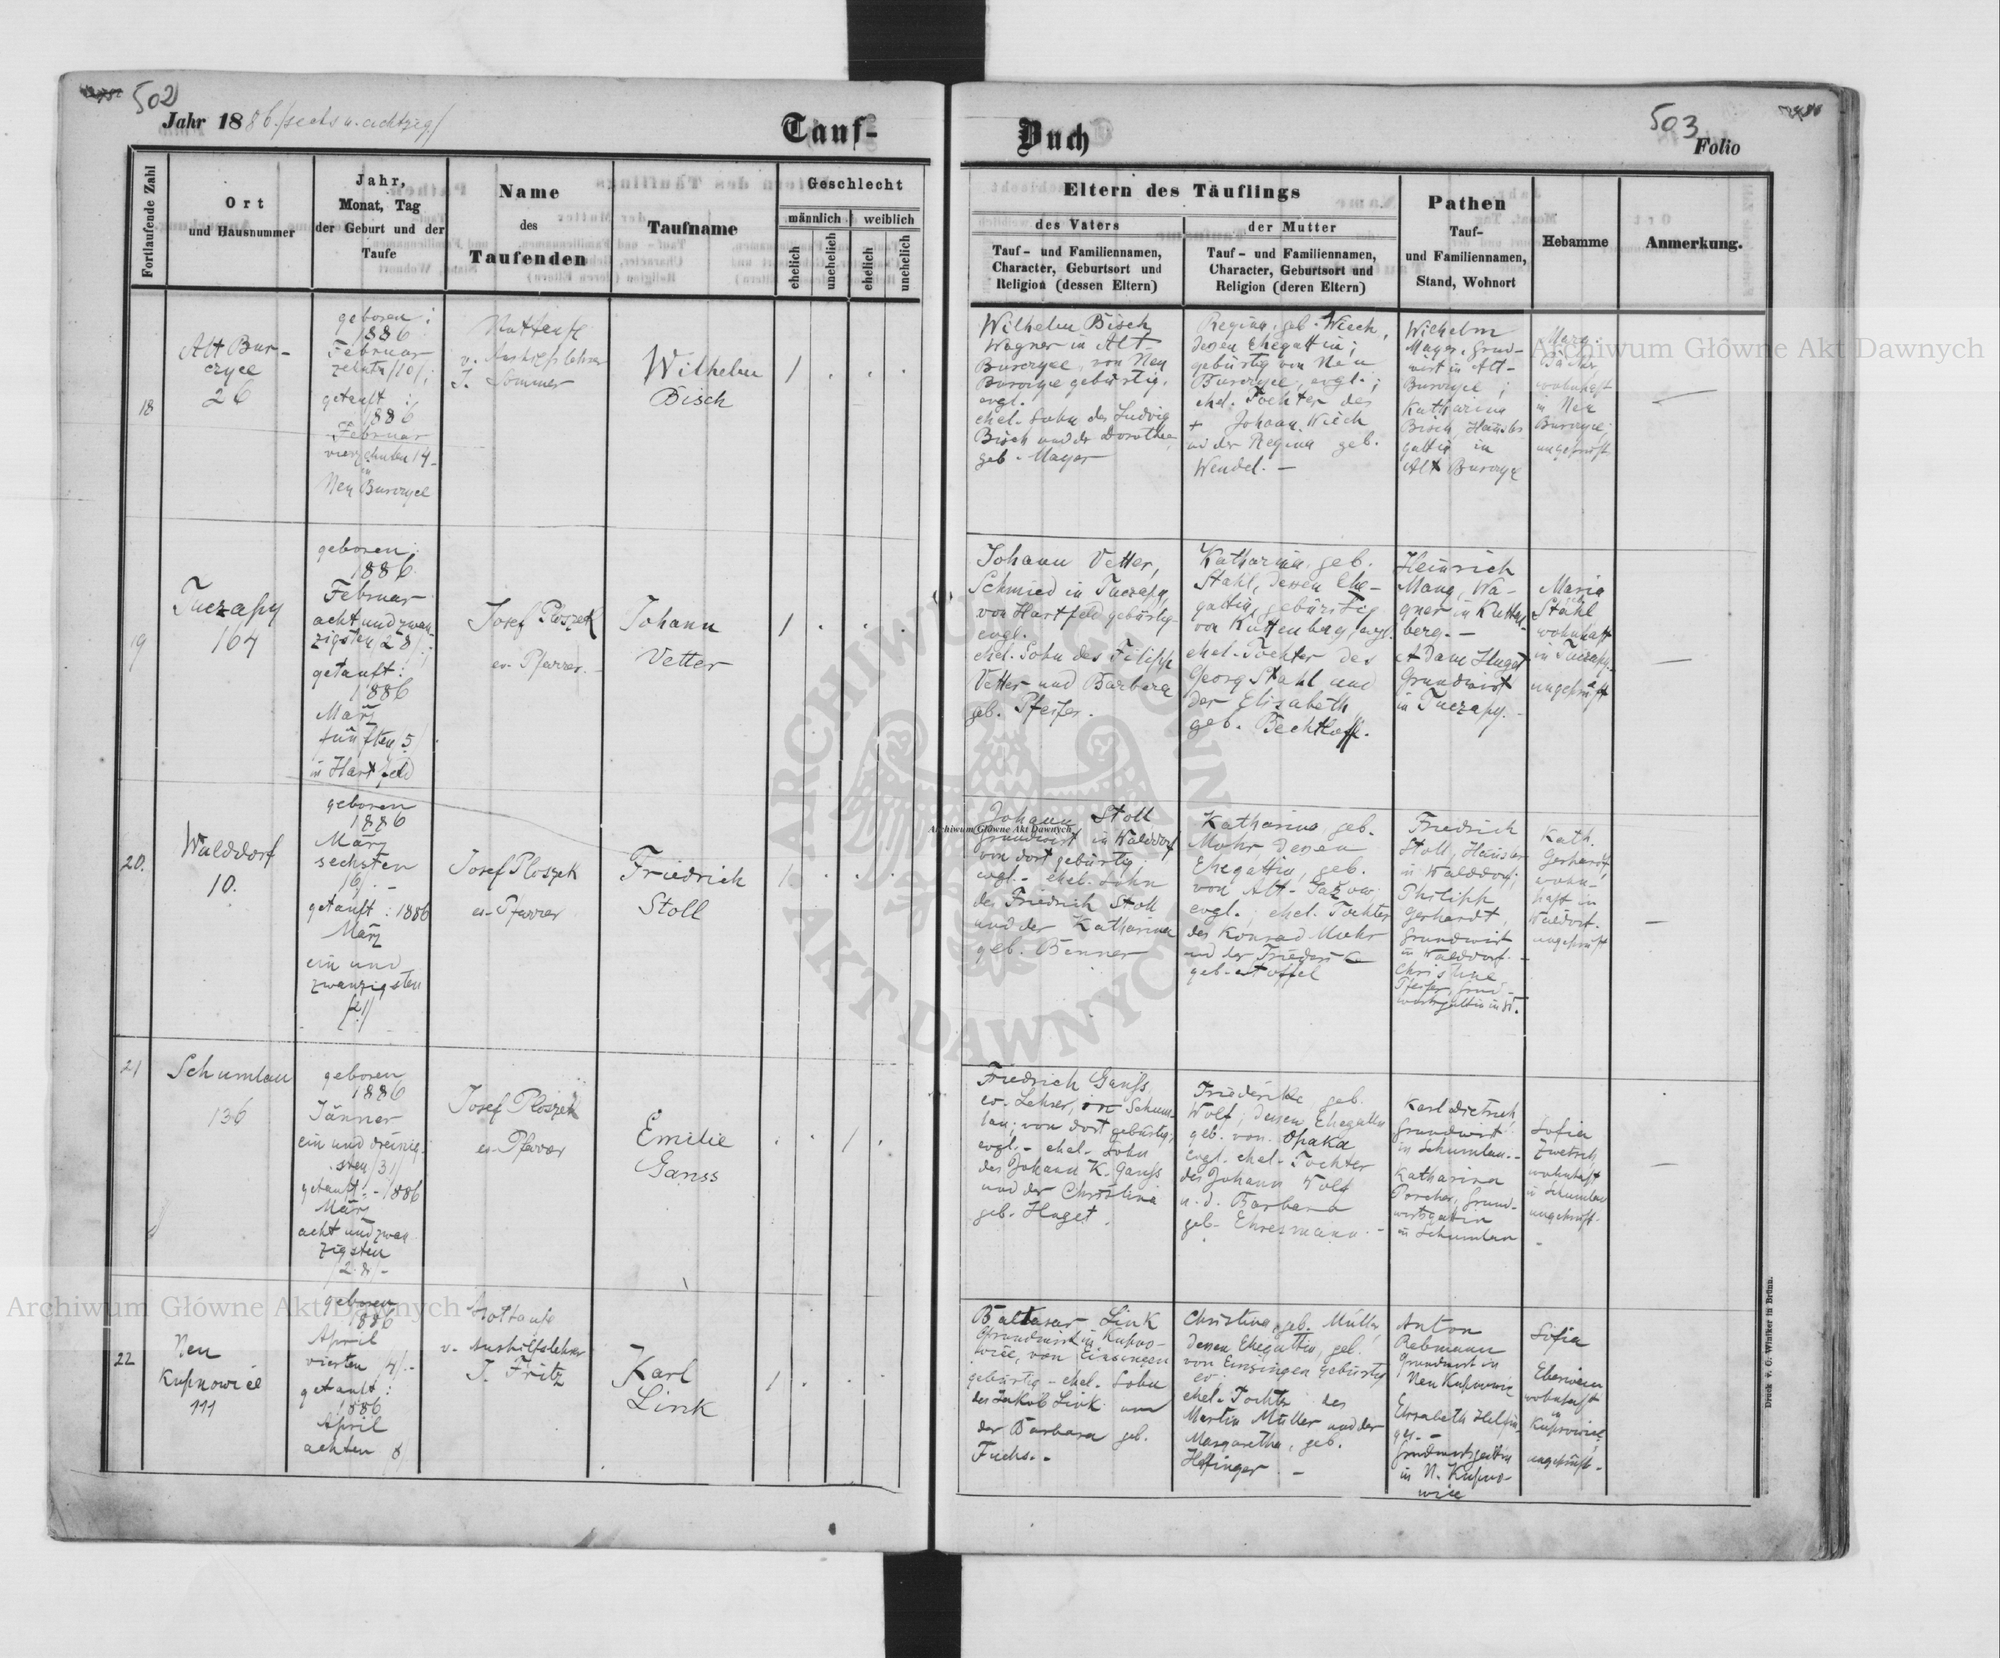 502
Jahr 1886 /sechs u. achtzig/
Tauf-
Fortlaufende Zahl
Ort
und Hausnummer
Jahr,
Monat, Tag
der Geburt und der
Taufe
Name
des
Taufenden
Taufname
Geschlecht
männlich
weiblich
ehelich
unehelich
ehelich
unehelich
18
Alt Bur-
czyce
26
geboren:
1886
Februar
zehnten /10/;
getauft:
1886
Februar
vierzehnten 14-
in
Neu Burczyce
Nottaufe
v. Aushilfslehrer
J. Sommer
Wilhelm
Bisch
1 . . .
19
Tuczapy
164
geboren:
1886
Februar
acht und zwan-
zigsten /28/;
getauft:
1886
März
fünften 5/
in Hartfeld
Josef Ploszek
ev. Pfarrer.
Johann
Vetter
1 . . .
20.
Walddorf
10.
geboren
1886
März
sechsten
/6/. -
getauft: 1886
März
ein und
zwanzigsten
/21/
Josef Ploszek
ev. Pfarrer
Friedrich
Stoll
1 . . .
21
Schumlau
136
geboren
1886
Jänner
ein und dreissig-
sten /31/
getauft: - 1886
März
acht und zwan-
zigsten
/28/-
Josef Ploszek
ev. Pfarrer
Emilie
Ganss
. . 1 .
22
Neu
Kupnowice
111
geboren
1886
April
vierten /4/-
getauft:
1886
April
achten 8/
Nottaufe
v. Aushilfslehrer
J. Fritz
Karl
Link
1 . . .
503
Buch
Folio
Eltern des Täuflings
des Vaters
Tauf- und Familiennamen,
Character, Geburtsort und
Religion (dessen Eltern)
der Mutter
Tauf- und Familiennamen,
Character, Geburtsort und
Religion (deren Eltern)
Pathen
Tauf-
und Familiennamen,
Stand, Wohnort
Hebamme
Anmerkung.
Wilhelm Bisch
Wagner in Alt
Burczyce, von Neu
Burczyce gebürtig,
evgl.
ehel. Sohn des Ludwig
Bisch und der Dorothea
geb. Mayer
Regina, geb. Wiech,
dessen Ehegattin;
gebürtig von Neu
Burczyce, evgl.;
ehel. Tochter des
+ Johann Wiech
und der Regina geb.
Wendel. -
Wilhelm
Mayer, Grund-
wirt in Alt-
Burczyce;
Katharina
Bisch,
gattin in
Alt Burczyce
Marg.
wohnhaft
in Neu
Burczyce,
ungeprüft
Johann Vetter,
Schmied in Tuczapy,
von Hartfeld gebürtig
evgl.
ehel. Sohn des Filipp
Vetter und Barbara
geb. Pfeifer.
Katharina, geb.
Stahl, dessen Ehe-
gattin, gebürtig
von Kuttenberg, evgl.
ehel. Tochter des
Georg Stahl und
der Elisabeth
geb. Bechtloff.
Heinrich
Mang, Wa-
gner in Kutten-
berg. -
Adam Huget
Grundwirt
in Tuczapy.
Maria
Stahl
wohnhaft
in Tuczapy.
ungeprüft
Johann Stoll
Grundwirt in Walddorf
von dort gebürtig
evgl. - ehel. Sohn
des Friedrich Stoll
und der Katharina
geb. Benner
Katharina, geb.
Mohr, dessen
Ehegattin, geb.
von Alt-Jazow
evgl.; ehel. Tochter
des Konrad Mohr
und der Friederike
geb. Stoffel
Friedrich
Stoll, Häusler
in Walddorf;
Philipp
Gerhardt,
Grundwirt
in Walddorf. -
Christine
Pfeifer, Grund-
wirtsgattin in W.
Kath.
Gerhardt,
wohn-
haft in
Walddorf.
ungeprüft
Friedrich Ganss,
ev. Lehrer, in Schum-
lau; von dort gebürtig,
evgl. - ehel. Sohn
des Johann K. Ganss
und der Christina
geb. Huget.
Friederike geb.
Wolf; dessen Ehegattin
geb. von Opaka
evgl. ehel. Tochter
des Johann Wolf
u. d. Barbara
geb. Ehresmann. -
Karl Dietrich,
Grundwirt
in Schumlau. -
Katharina
Porcher, Grund-
wirtsgattin
in Schumlau
Sofia
wohnhaft
in Schumlau
ungeprüft.
Baltasar Link
Grundwirt in Kupno-
wice, von Einsingen
gebürtig - ehel. Sohn
des Jakob Link und
der Barbara geb.
Fuchs. -
Christina, geb. Müller,
dessen Ehegattin, geb.
von Einsingen gebürtig
ev.
ehel. Tochter des
Martin Müller und der
Margaretha, geb.
Helfinger. -
Anton
Rebmann
Grundwirt in
Neu Kupnowice
Elisabeth Helfin-
ger. -
Grundwirtsgattin
in N. Kupno-
wice
Sofia
Eberwein
wohnhaft
in
Kupnowice,
ungeprüft.
Druck v. G. Winiker in Brünn.
Archiwum Główne Akt Dawnych
Archiwum Główne Akt Dawnych
Archiwum Główne Akt Dawnych
ARCHIWUM GŁÓWNE AKT DAWNYCH